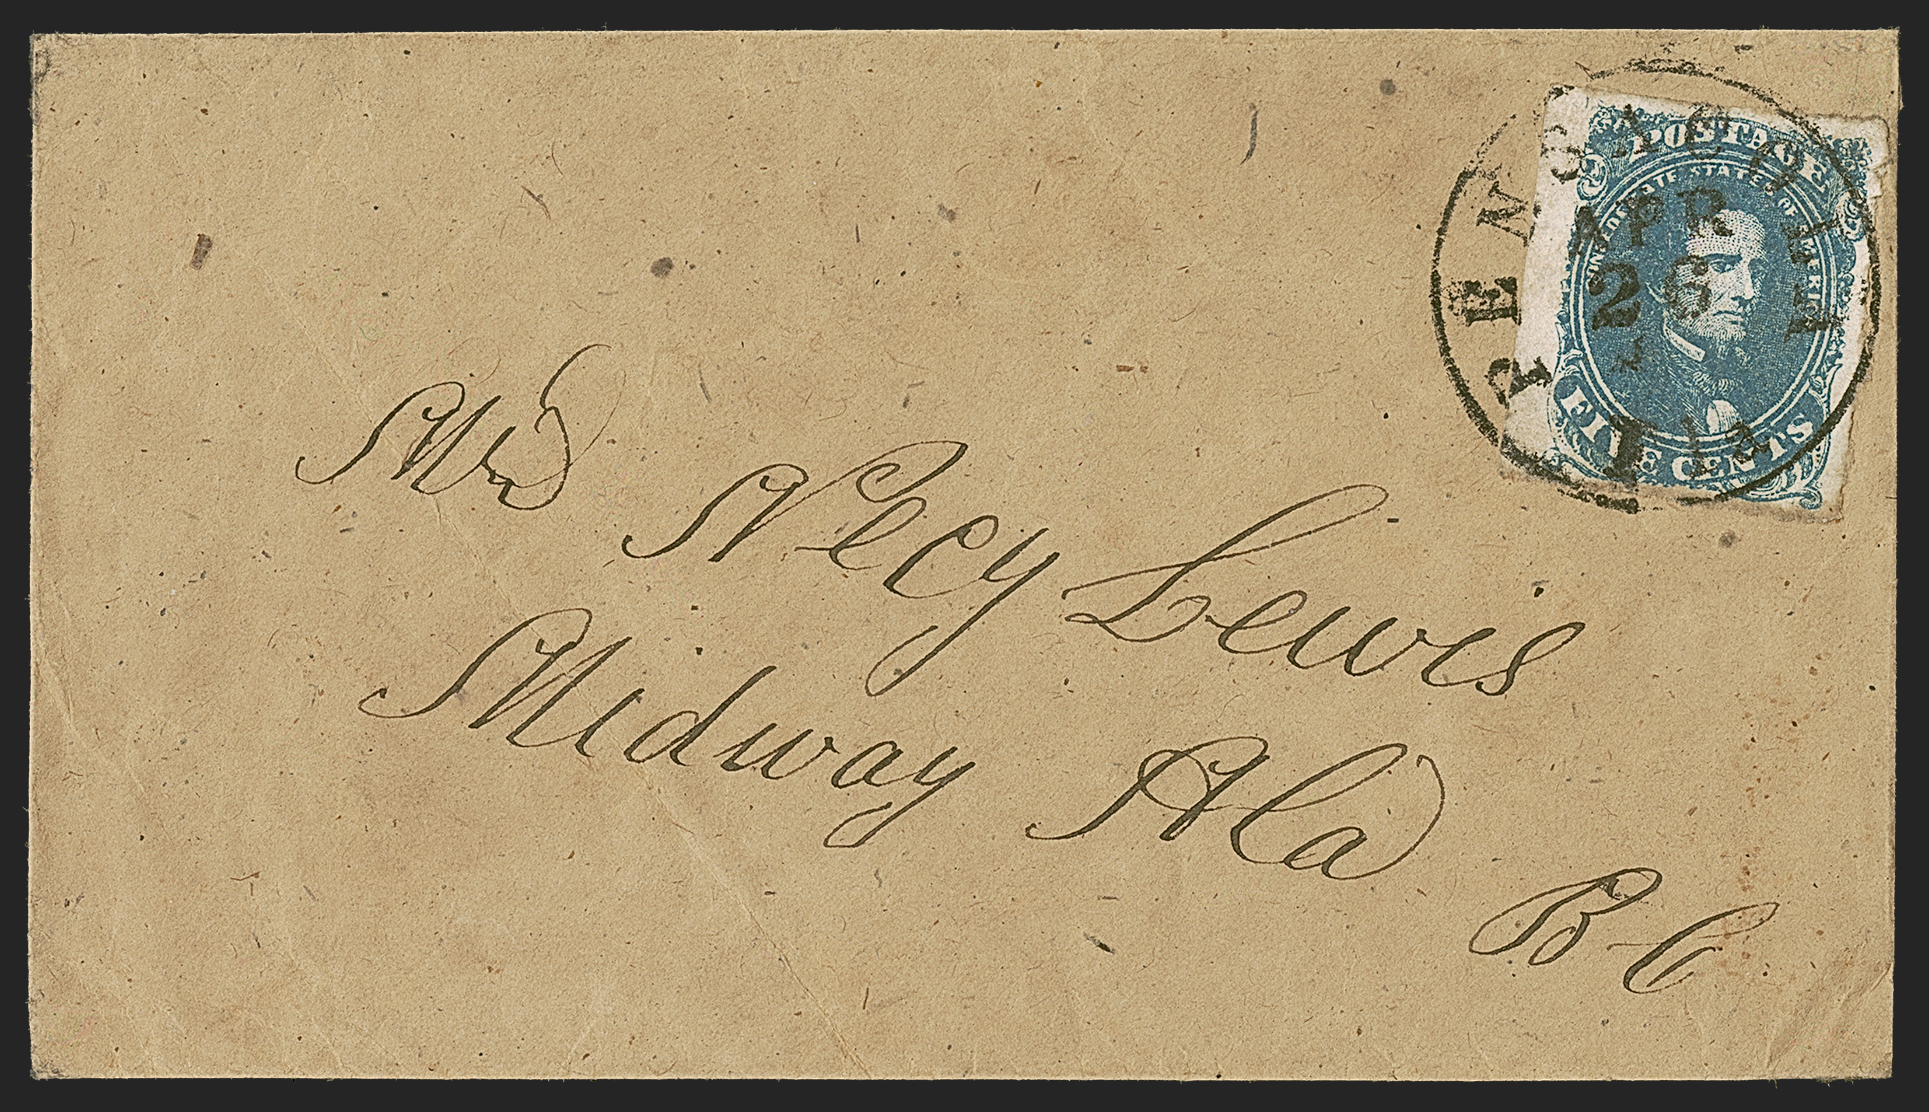 PENSACOLA
Fla.
APR
26
POSTAGE
CONFEDERATE STATES OF AMERICA
FIVE CENTS
Mrs Necy Lewis
Midway Ala
B C